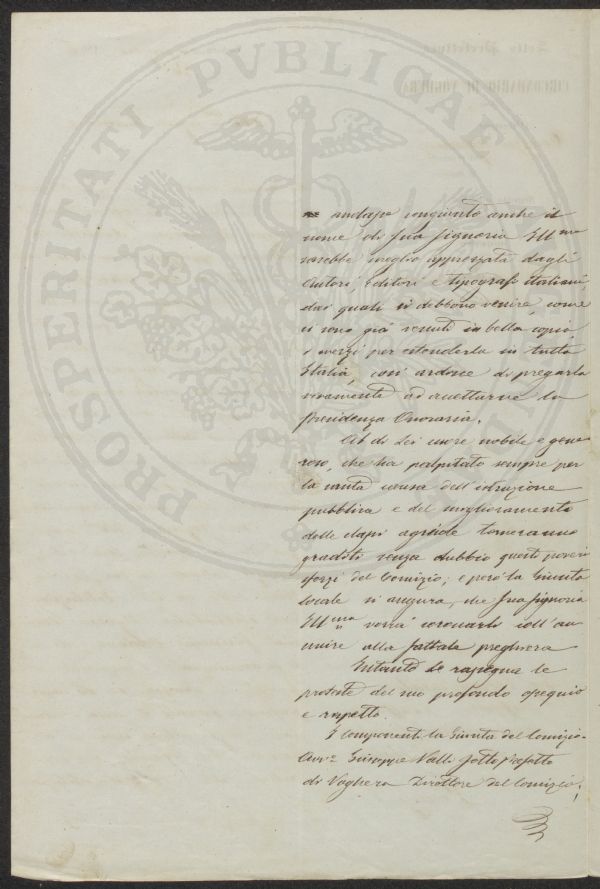 PROSPERITATI PVBLICAE
andasse congiunto anche il
nome di Sua Signoria Ill.ma
sarebbe meglio apprezzata dagli
Autori, Editori e tipografi italiani,
dai quali si debbono venire, come
ci sono già venuti in bella copia,
i mezzi per estenderla in tutta
Italia, così ardisce di pregarla
vivamente ad accettarne la
Presidenza Onoraria.
Al di Lei cuore nobile e gene-
roso, che ha palpitato sempre per
la santa causa dell'istruzione
pubblica e del miglioramento
delle classi agricole torneranno
graditi senza dubbio questi poveri
sforzi del Comizio; e però la Giunta
locale si assicura, che Sua Signoria
Ill.ma vorrà coronarli coll'an-
nuire alla fattale preghiera
Intanto Le rassegna le
proteste del suo profondo ossequio
e rispetto.
I componenti la Giunta del Comizio.
Avv. Giuseppe Valli Sotto Prefetto
di Voghera Direttore del Comizio,